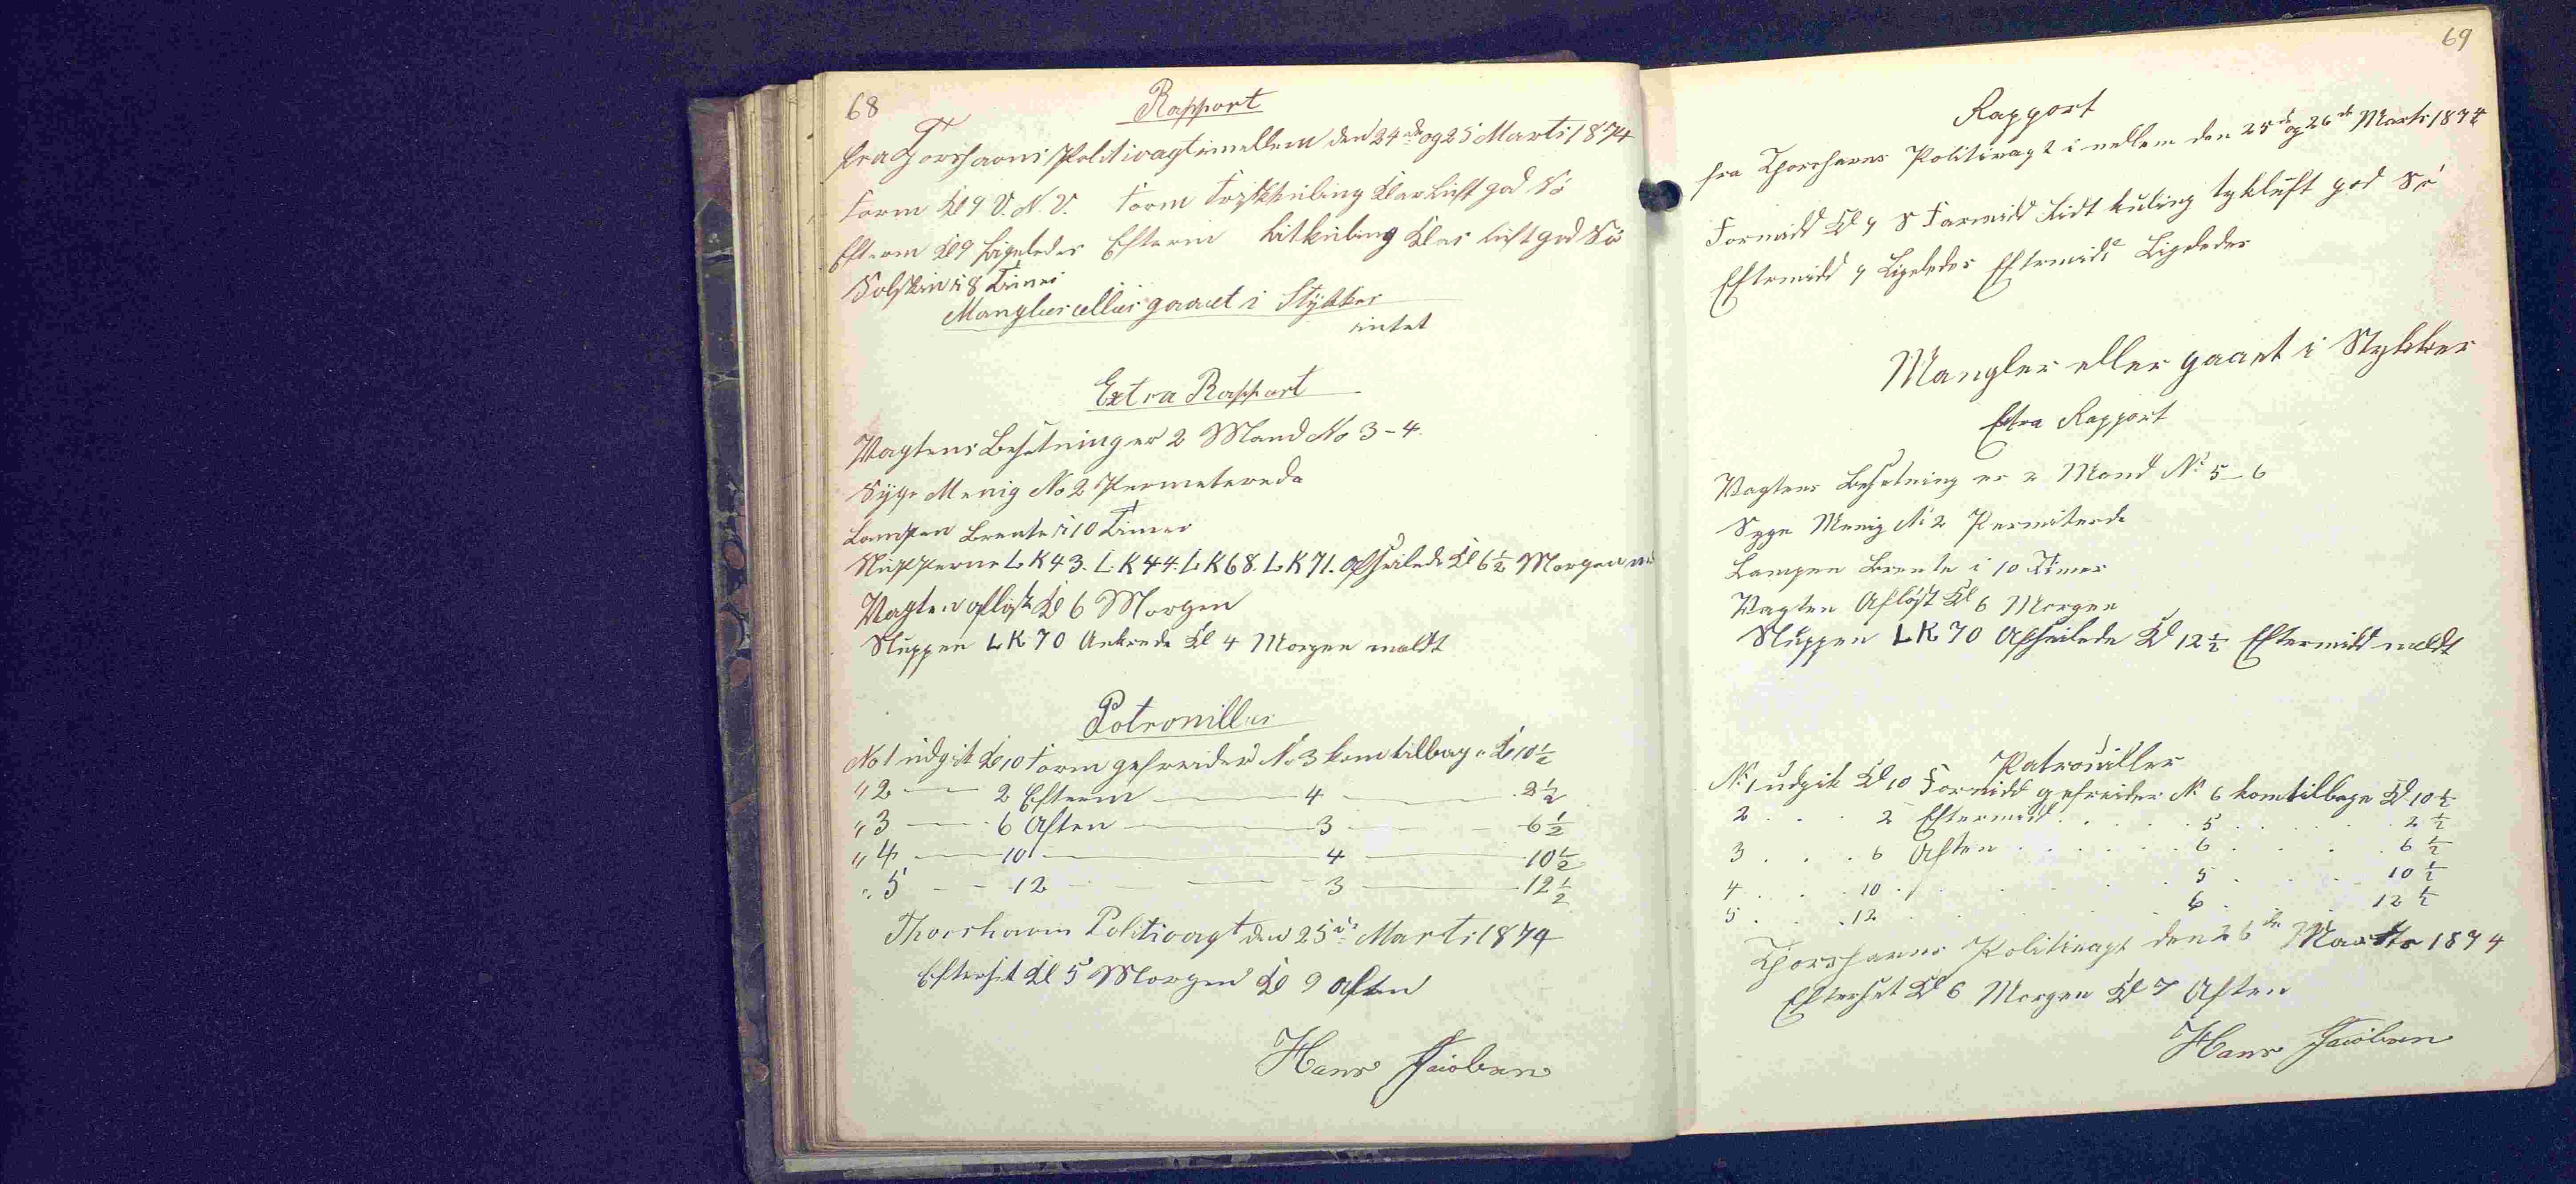 68
Rapport
fra Torshavns Politivagt imellem den 24de og 25 Marts 1874
Form Kl 9 V.N.V. Form friskkuling Klar Luft god Sö
Efterm Kl 9 ligeledes Efterm litkuling Klar luft god Sö
Solskin i 8 Timer
Mangler eller gaaet i Stykker
intet
Extra Rapport
Vagtens Besetning er 2 Mand No 3-4.
Syge Menig No 2 Permeterede
Lampen Brente i 10 Timer
Slupperne LK43. LK44. LK68. LK71. afseilede Kl 6½ Morgen
Vagten aflöst Kl 6 Morgen
Sluppen LK 70 Ankrede Kl 4 Morgen meldt
Patrouiller
No 1 udgik Kl 10 Form gefreider No 3 kom tilbage Kl 10½
" 2 — 2 Efterm — 4 — 2½
" 3 — 6 Aften — 3 — 6½
" 4 — 10 — 4 — 10½
" 5 — 12 — 3 — 12½
Thorshavns Politivagt den 25de Marts 1874
Efterset Kl 5 Morgen Kl 9 Aften
Hans Jacobsen
69
Rapport
fra Thorshavns Politivagt imellem den 25de og 26de Marts 1874
Formidd Kl 9 S Formidd lidt kuling tykluft god Sö
Eftermidd 9 Ligeledes Eftermidd Ligeledes
Mangler eller gaaet i Stykker
Extra Rapport
Vagtens Besetning er 2 Mand No 5-6
Syge Menig No 2 Permiterede
Lampen Brente i 10 Timer
Vagten Aflöst Kl 6 Morgen
Sluppen LK 70 Afseilede Kl 12½ Eftermidd meldt
Patrouiller
No 1 udgik Kl 10 Formidd gefreider No 6 kom tilbage Kl 10½
2 . . . 2 Eftermidd . . . . 5 . . . . 2½
3 . . . 6 Aften . . . . 6 . . . . 6½
4 . . . 10 . . . . 5 . . . . 10½
5 . . . 12 . . . . 6 . . . . 12½
Thorshavns Politivagt den 26de Marts 1874
Efterset Kl 6 Morgen Kl 7 Aften
Hans Jacobsen